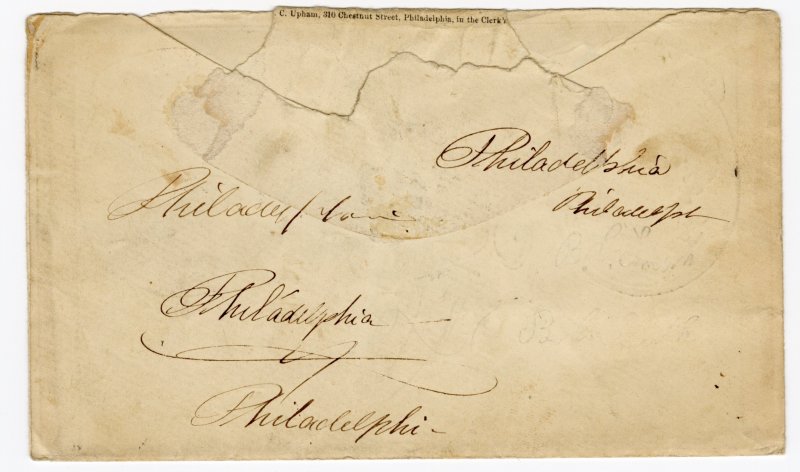 C. Upham, 310 Chestnut Street, Philadelphia, in the Clerk's
Philadelphia
Philadelph
Philadelphia
Philadelphia
Philadelphi